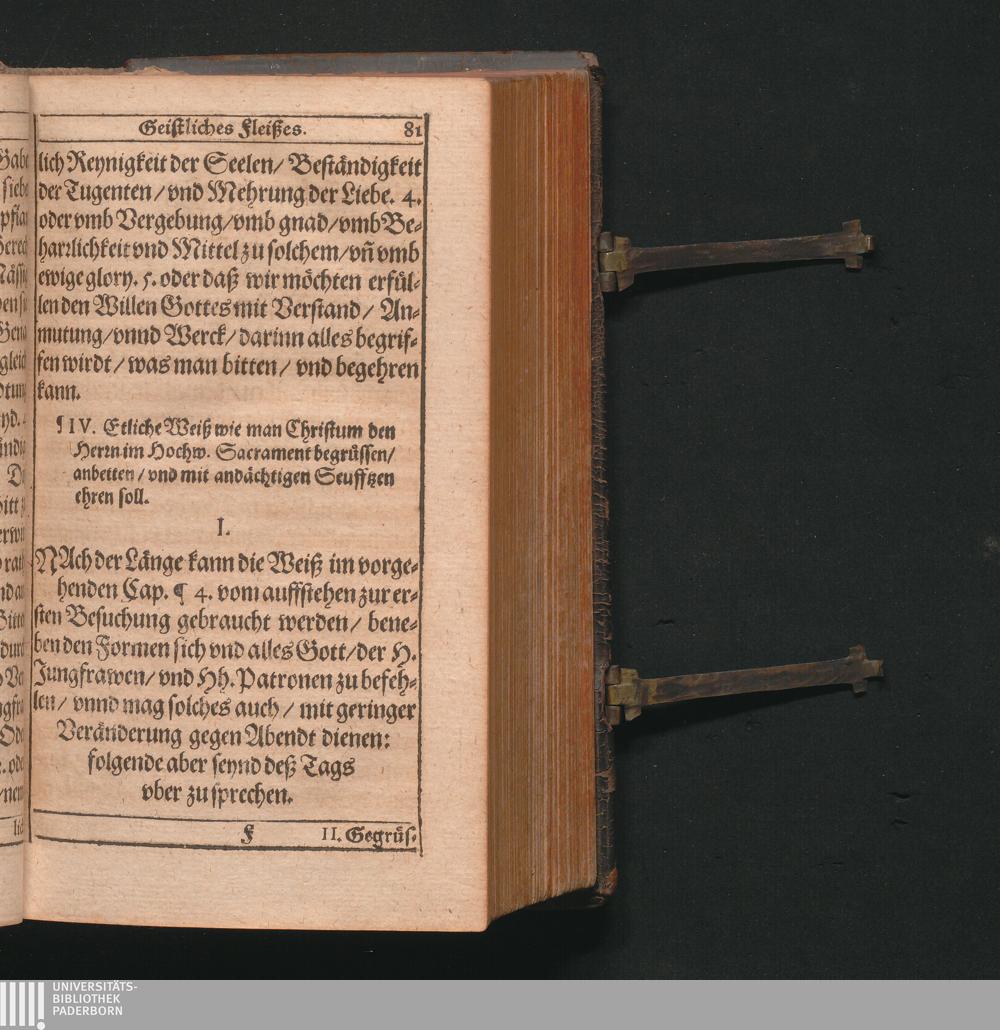 Geistliches Fleißes. 81
lich Reynigkeit der Seelen/ Beständigkeit
der Tugenten/ vnd Mehrung der Liebe. 4.
oder vmb Vergebung/ vmb gnad/ vmb Be-
harrlichkeit vnd Mittel zu solchem/ vñ vmb
ewige glory. 5. oder daß wir möchten erfül-
len den Willen Gottes mit Verstand/ An-
mutung/ vnnd Werck/ darinn alles begrif-
fen wirdt/ was man bitten/ vnd begehren
kann.
¶ IV. Etliche Weiß wie man Christum den
Herrn im Hochw. Sacrament begrüssen/
anbetten/ vnd mit andächtigen Seufftzen
ehren soll.
I.
NAch der Länge kann die Weiß im vorge-
henden Cap. ¶ 4. vom auffstehen zur er-
sten Besuchung gebraucht werden/ bene-
ben den Formen sich vnd alles Gott/ der H.
Jungfrawen/ vnd Hh. Patronen zu befeh-
len/ vnnd mag solches auch/ mit geringer
Veränderung gegen Abendt dienen:
folgende aber seynd deß Tags
vber zu sprechen.
F II. Gegrüs-
UNIVERSITÄTS-
BIBLIOTHEK
PADERBORN